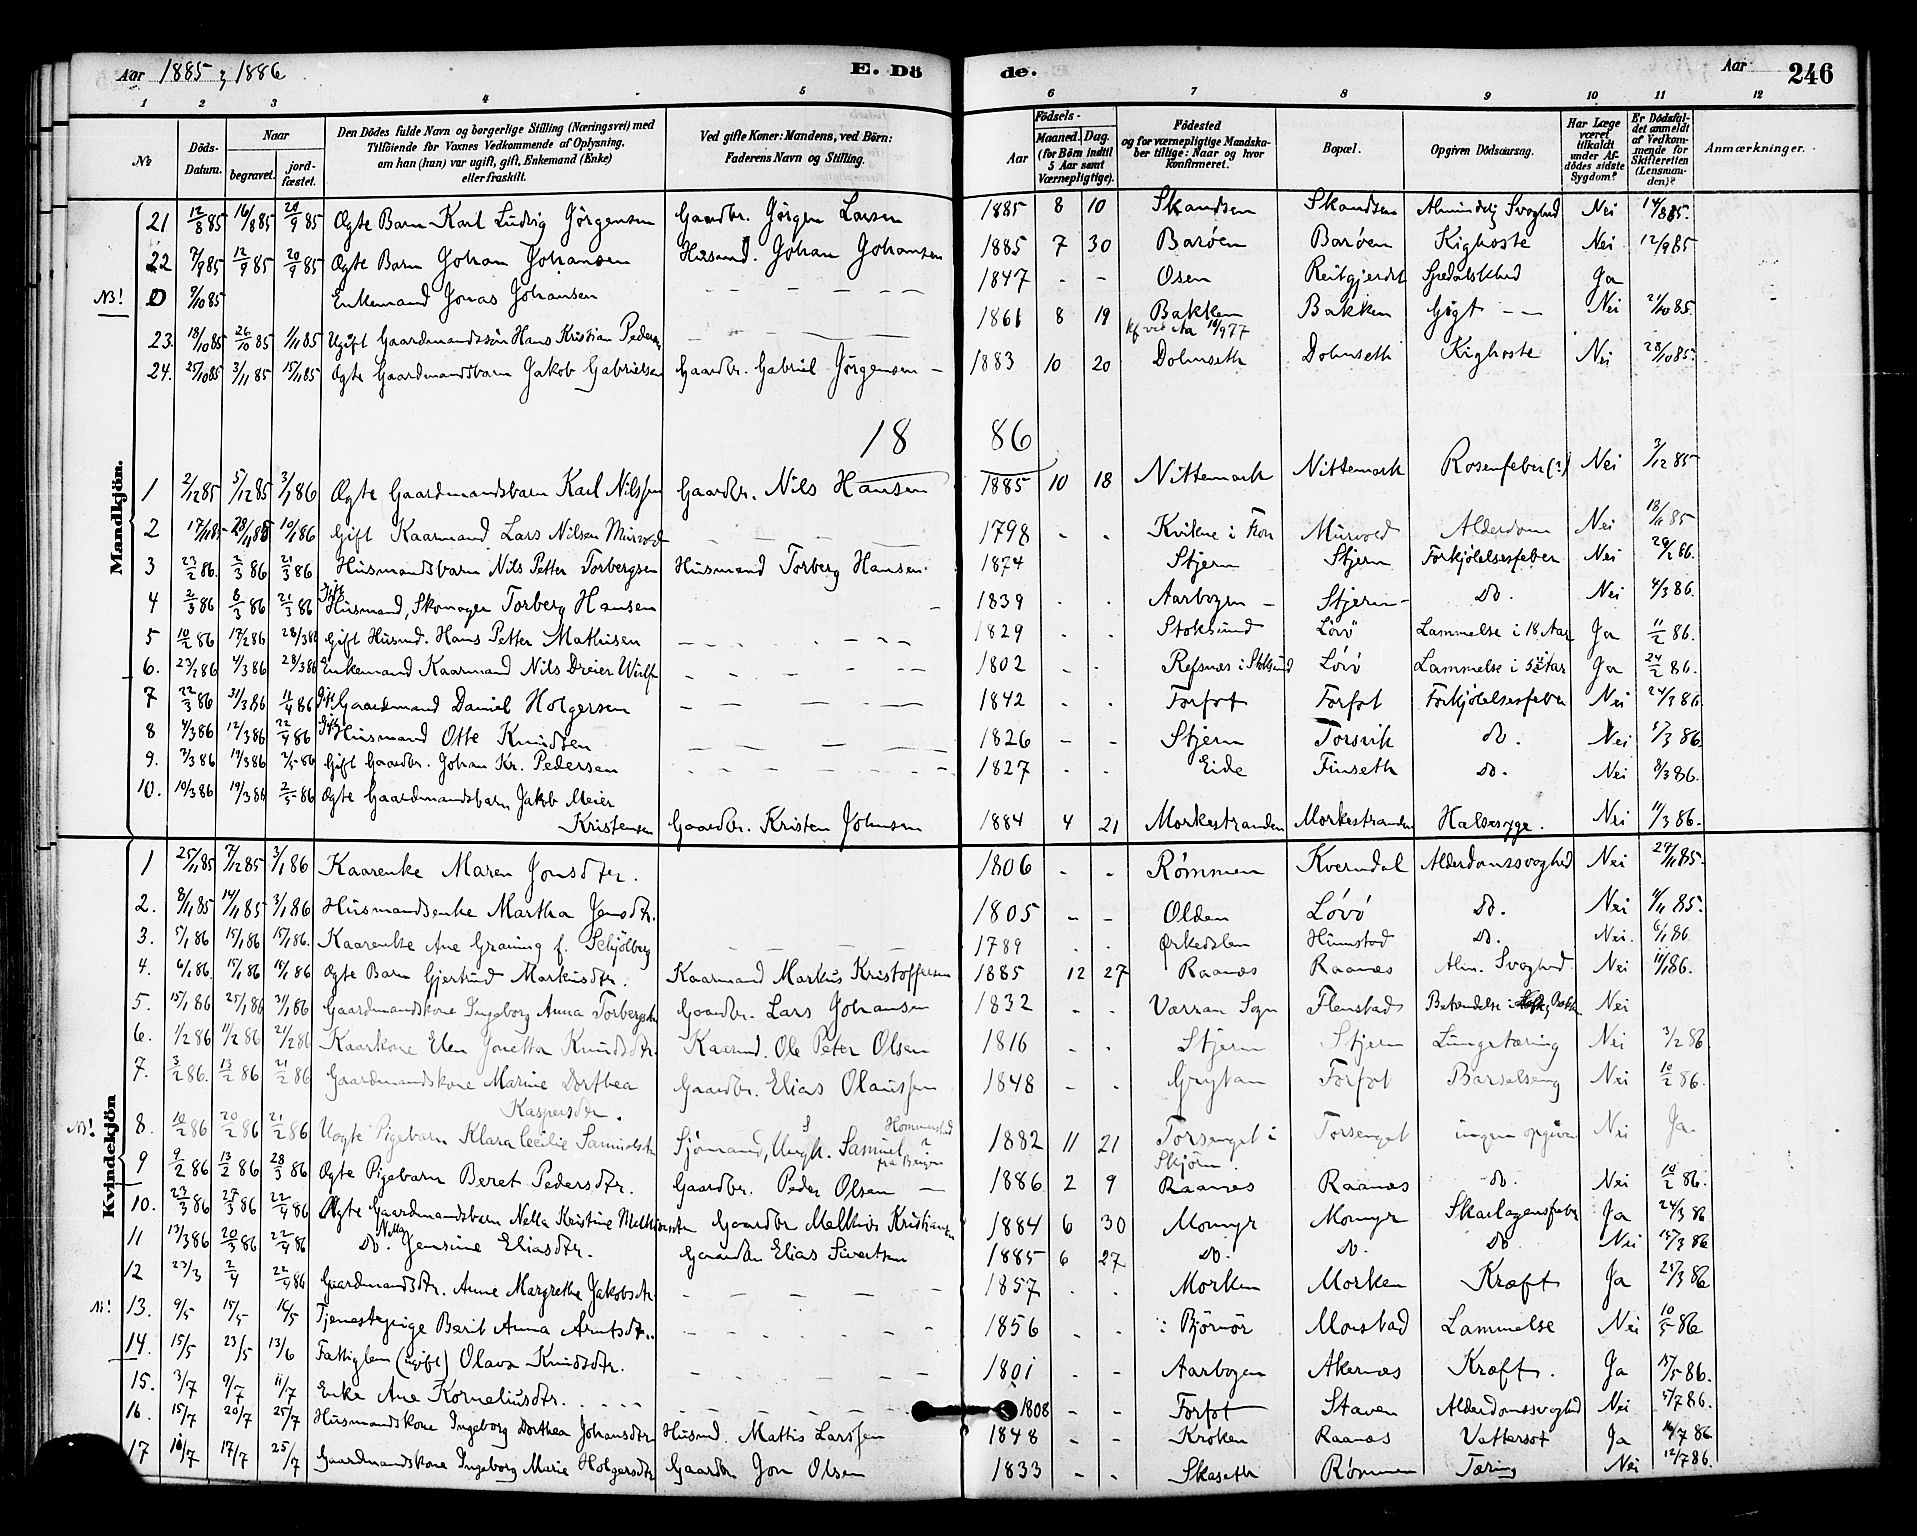 Aar 1885 & 1886 E. Dö de. Aar 246
1 2 3 4 5 6 7 8 9 10 11 12
No Döds-Datum. Naar begravet. jord-fæstet. Den Dödes fulde Navn og borgerlige Stilling (Næringsvei) med Tilföiende for Voxnes Vedkommende af Oplysning, om han (hun) var ugift, gift, Enkemand (Enke) eller fraskilt. Ved gifte Koner: Mandens, ved Börn: Faderens Navn og Stilling. Födsels- Aar Maaned. Dag. (for Börn indtil 5 Aar samt Værnepligtige). Födested og for værnepligtige Mandskaber tillige: Naar og hvor konfirmeret. Bopæl. Opgiven Dödsaarsag. Har Læge været tilkaldt under Afdödes sidste Sygdom? Er Dödsfaldet anmeldt af Vedkommende for Skifteretten (Lensmanden)? Anmærkninger.
Mandkjön.
21 12/8 85 16/8 85 20/9 85 Ægte Barn Karl Ludvig Jörgensen Gaardbr. Jörgen Larsen 1885 8 10 Skandsen Skandsen Almindelig Svaghed Nei 14/8 85.
22 7/9 85 12/9 85 20/9 85 Ægte Barn Johan Johansen Husmd. Johan Johansen 1885 7 30 Baröen Baröen Kighoste Nei 12/9 85
NB! 0 9/10 85 Enkemand Jonas Johansen 1847 - - Osen Reitgjerdet Spedalskhed Ja
23. 18/10 85 26/10 85 1/11 85 Ugift Gaardmandssön Hans Kristian Pedersen 1861 8 19 Bakken Bakken Gigt Nei 21/10 85.
24. 25/10 85 3/11 85 15/11 85 Ægte Gaardmandsbarn Jakob Gabrielsen Gaardbr. Gabriel Jörgensen 1883 10 20 Dolmseth Dolmseth Kighoste Nei 28/10 85.
18 86
1 2/12 85 5/12 85 3/1 86 Ægte Gaardmandsbarn Karl Nilssen Gaardbr. Nils Hansen 1885 10 18 Nittemark Nittemark Rosenfeber (?) Nei 3/12 85
2 17/11 85 28/11 85 10/1 86 Gift Kaarmand Lars Nilsen Murvold 1798 - - Kvikne i Murvold Alderdom Nei 18/11 85
3 23/2 86. 2/3 86 21/3 86 Husmandsbarn Nils Petter Torbergsen Husmand Torberg Hansen. 1874 Stjern Stjern Forkjölelsesfeber Nei 86.
4 2/3 86 8/3 86 21/3 86 Gift Husmand, Skomager Torberg Hansen 1839 . . Aarbogen Stjern Do. Nei 4/3 86.
5 10/2 86 17/2 86 28/3 86 Gift Husmd. Hans Petter Mathisen 1829 . . Stoksund Lövö Lammelse i 18 Aar Ja 11/2 86.
6. 23/2 86 4/3 86 28/3 86 Enkemand Kaarmand Nils Dreier 1802 - . Refsnæs i Stoksund Lövö Lammelse i Aar Ja 24/2 86.
7 22/3 86 31/3 86 11/4 86 Gift Gaardmand Daniel Holgersen 1842 . . Forfot Forfot Forkjölelsesfeber Nei 24/3 86
8 4/3 86 12/3 86 22/4 86 Gift Husmand Otte Knudsen 1826 - - Stjern Torsvik do. Nei 5/3 86.
9. 7/3 86 17/3 86 2/5 86 Gift Gaardbr. Johan Kr. Pedersen 1827 . . Eide Finseth Do. Nei 8/3 86.
10. 10/3 86 19/3 86 2/5 86 Ægte Gaardmandsbarn Jakob Meier
Kristensen Gaardbr. Kristen Johnsen 1884 4 21 Morkestranden Morkestranden Halssyge. Nei 11/3 86.
Kvindekjön
1 25/11 85 7/12 85 3/1 86 Kaarenke Maren Jonsdtr. 1806 - - Römmen Kverndal Alderdomssvaghed Nei 27/11 85.
2. 8/11 85 14/11 85 3/1 86 Husmandsenke Martha Jensdtr. 1805 - - Olden Lövö Do. Nei 11/11 85.
3. 5/1 86 15/1 86 15/1 86. Kaarenke Ane Graning f. Schjölberg 1789 . . Örkedalen Humstad Do. Nei. 6/1 86
4. 6/1 86. 15/1 86 15/1 86 Ægte Barn Gjertrud Markusdtr. Kaarmand Markus Kristoffersen 1885 12 27 Raanæs Raanæs Alm. Svaghed Nei 11/1 86.
5. 15/1 86 25/1 86 31/1 86 Gaardmandskone Ingeborg Anna Torbergsdtr Gaardbr. Lars Johansen 1832 . . Varran Sogn Flenstad Betændelse i Nei
6. 1/2 86 11/2 86 21/2 86 Kaarkone Elen Jonetta Knudsdtr. Kaarmd. Ole Peter Olsen 1816 . . Stjern Stjern Lungetæring Nei 3/2 86
7. 3/2 86. 13/2 86 21/2 86 Gaardmandskone Marine Dorthea
Kaspersdtr. Gaardbr. Elias Olaussen 1848 - - Grytan Forfot Barselseng Nei 10/2 86.
NB! 8. 10/2 86 20/2 86 21/2 86 Uægte Pigebarn Klara Cecilie Samuelsdtr Sjömand, Ungk. Samuel Hommerstad fra 1882 11 21 Torsenget i Skjörn. Torsenget ingen opgiven Nei Ja
9 9/2 86 13/2 86 28/3 86 Ægte Pigebarn Beret Pedersdtr. Gaardbr. Peder Olsen 1886 2 9 Raanæs Raanæs do. Nei 10/2 86.
10. 23/3 86 27/3 86 22/4 86 Ægte Gaardmandsbarn Nella Kristine Gaardbr Melkior Kristiansen 1884 6 30 Momyr Momyr Skarlagensfeber Ja 24/3 86
11 13/3 86 20/3 86 22/4 86 Do. Nella Jensine Eliasdtr. Gaardbr Elias Sivertsen 1885 6 27 Do. Do. Do Nei 15/3 86
12 23/3 2/4 22/4 86 Gaardmandsdtr. Anne Margrethe Jakobsdtr 1857 . . Morken Morken Kræft Ja 25/3 86
NB! 13. 9/5 15/5 16/5 Tjenestepige Berit Anna Arntsdtr. 1856 - - i Björnör Monstad Lammelse Nei 10/5 86
14. 15/5 23/5 13/6 Fattiglem (ugift) Olava Knudsdtr. 1801 - - Aarbogen Akernæs Kræft. Ja 15/5 86.
15. 3/7 9/7 11/7 Enke Ane Korneliusdtr. 1808 - - Forfot Staven Alderdomssvaghed Nei 5/7 86.
16. 15/7 20/7 25/7 Husmandskone Ingeborg Dorthea Johansdtr Husmd. Mattis Larssen 1848 - - Kroken Raanæs Vattersot Ja 16/7 86
17 10/7 17/7 25/7 Gaardmandskone Ingeborg Marie Holgersdtr Gaardbr Jon Olsen 1833 - - Skaseth Römmen Tæring Nei 12/7 86.